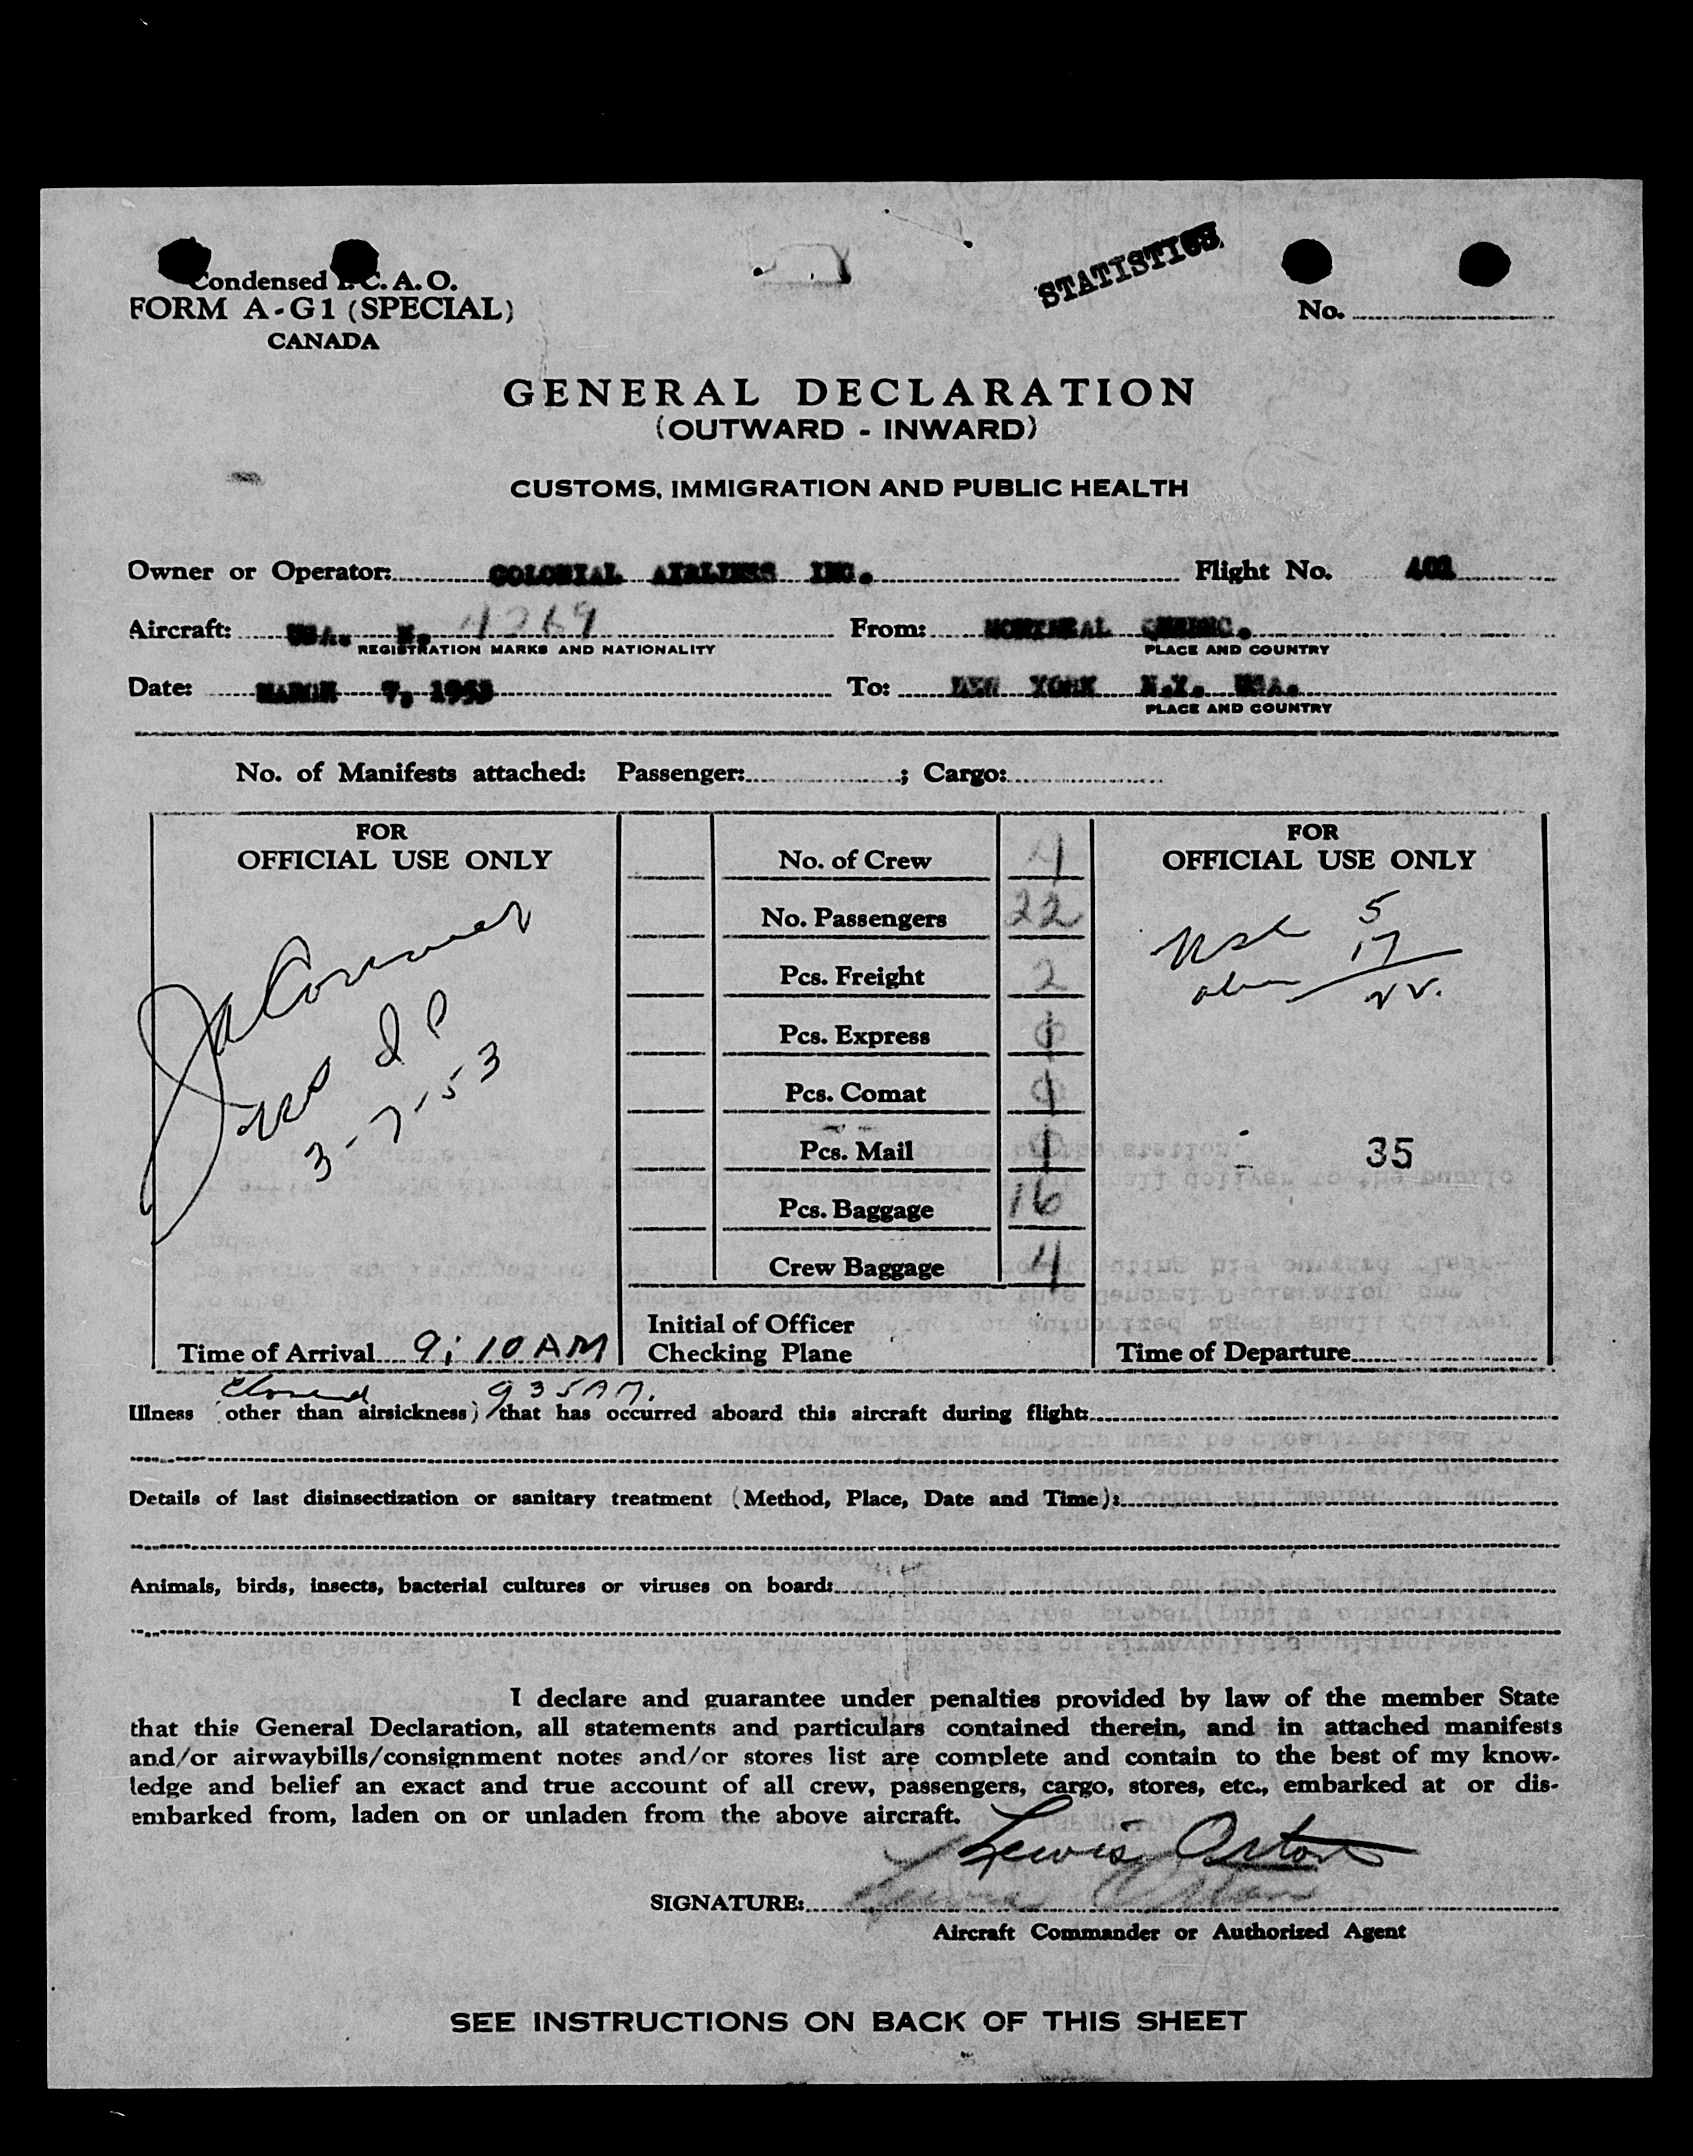 STATISTICS
Condensed I. C. A. O.
FORM A-G1 (SPECIAL)
CANADA
No.
GENERAL DECLARATION
(OUTWARD - INWARD)
CUSTOMS, IMMIGRATION AND PUBLIC HEALTH
Owner or Operator: COLONIAL AIRLINES INC. Flight No. 402
Aircraft: USA. N. 4269 From: MONTREAL QUEBEC.
REGISTRATION MARKS AND NATIONALITY PLACE AND COUNTRY
Date: MARCH 7, 1953 To: NEW YORK N.Y. USA.
PLACE AND COUNTRY
No. of Manifests attached: Passenger: ; Cargo:
FOR
OFFICIAL USE ONLY
3-7-53
Time of Arrival 9:10 AM
No. of Crew 4
No. Passengers 22
Pcs. Freight 2
Pcs. Express
Pcs. Comat
Pcs. Mail
Pcs. Baggage 16
Crew Baggage 4
Initial of Officer
Checking Plane
FOR
OFFICIAL USE ONLY
5
17
35
Time of Departure
Closed 935 AM.
Illness (other than airsickness) that has occurred aboard this aircraft during flight:
Details of last disinsectization or sanitary treatment (Method, Place, Date and Time):
Animals, birds, insects, bacterial cultures or viruses on board:
I declare and guarantee under penalties provided by law of the member State
that this General Declaration, all statements and particulars contained therein, and in attached manifests
and/or airwaybills/consignment notes and/or stores list are complete and contain to the best of my know-
ledge and belief an exact and true account of all crew, passengers, cargo, stores, etc., embarked at or dis-
embarked from, laden on or unladen from the above aircraft.
Lewis Orton
SIGNATURE:
Aircraft Commander or Authorized Agent
SEE INSTRUCTIONS ON BACK OF THIS SHEET